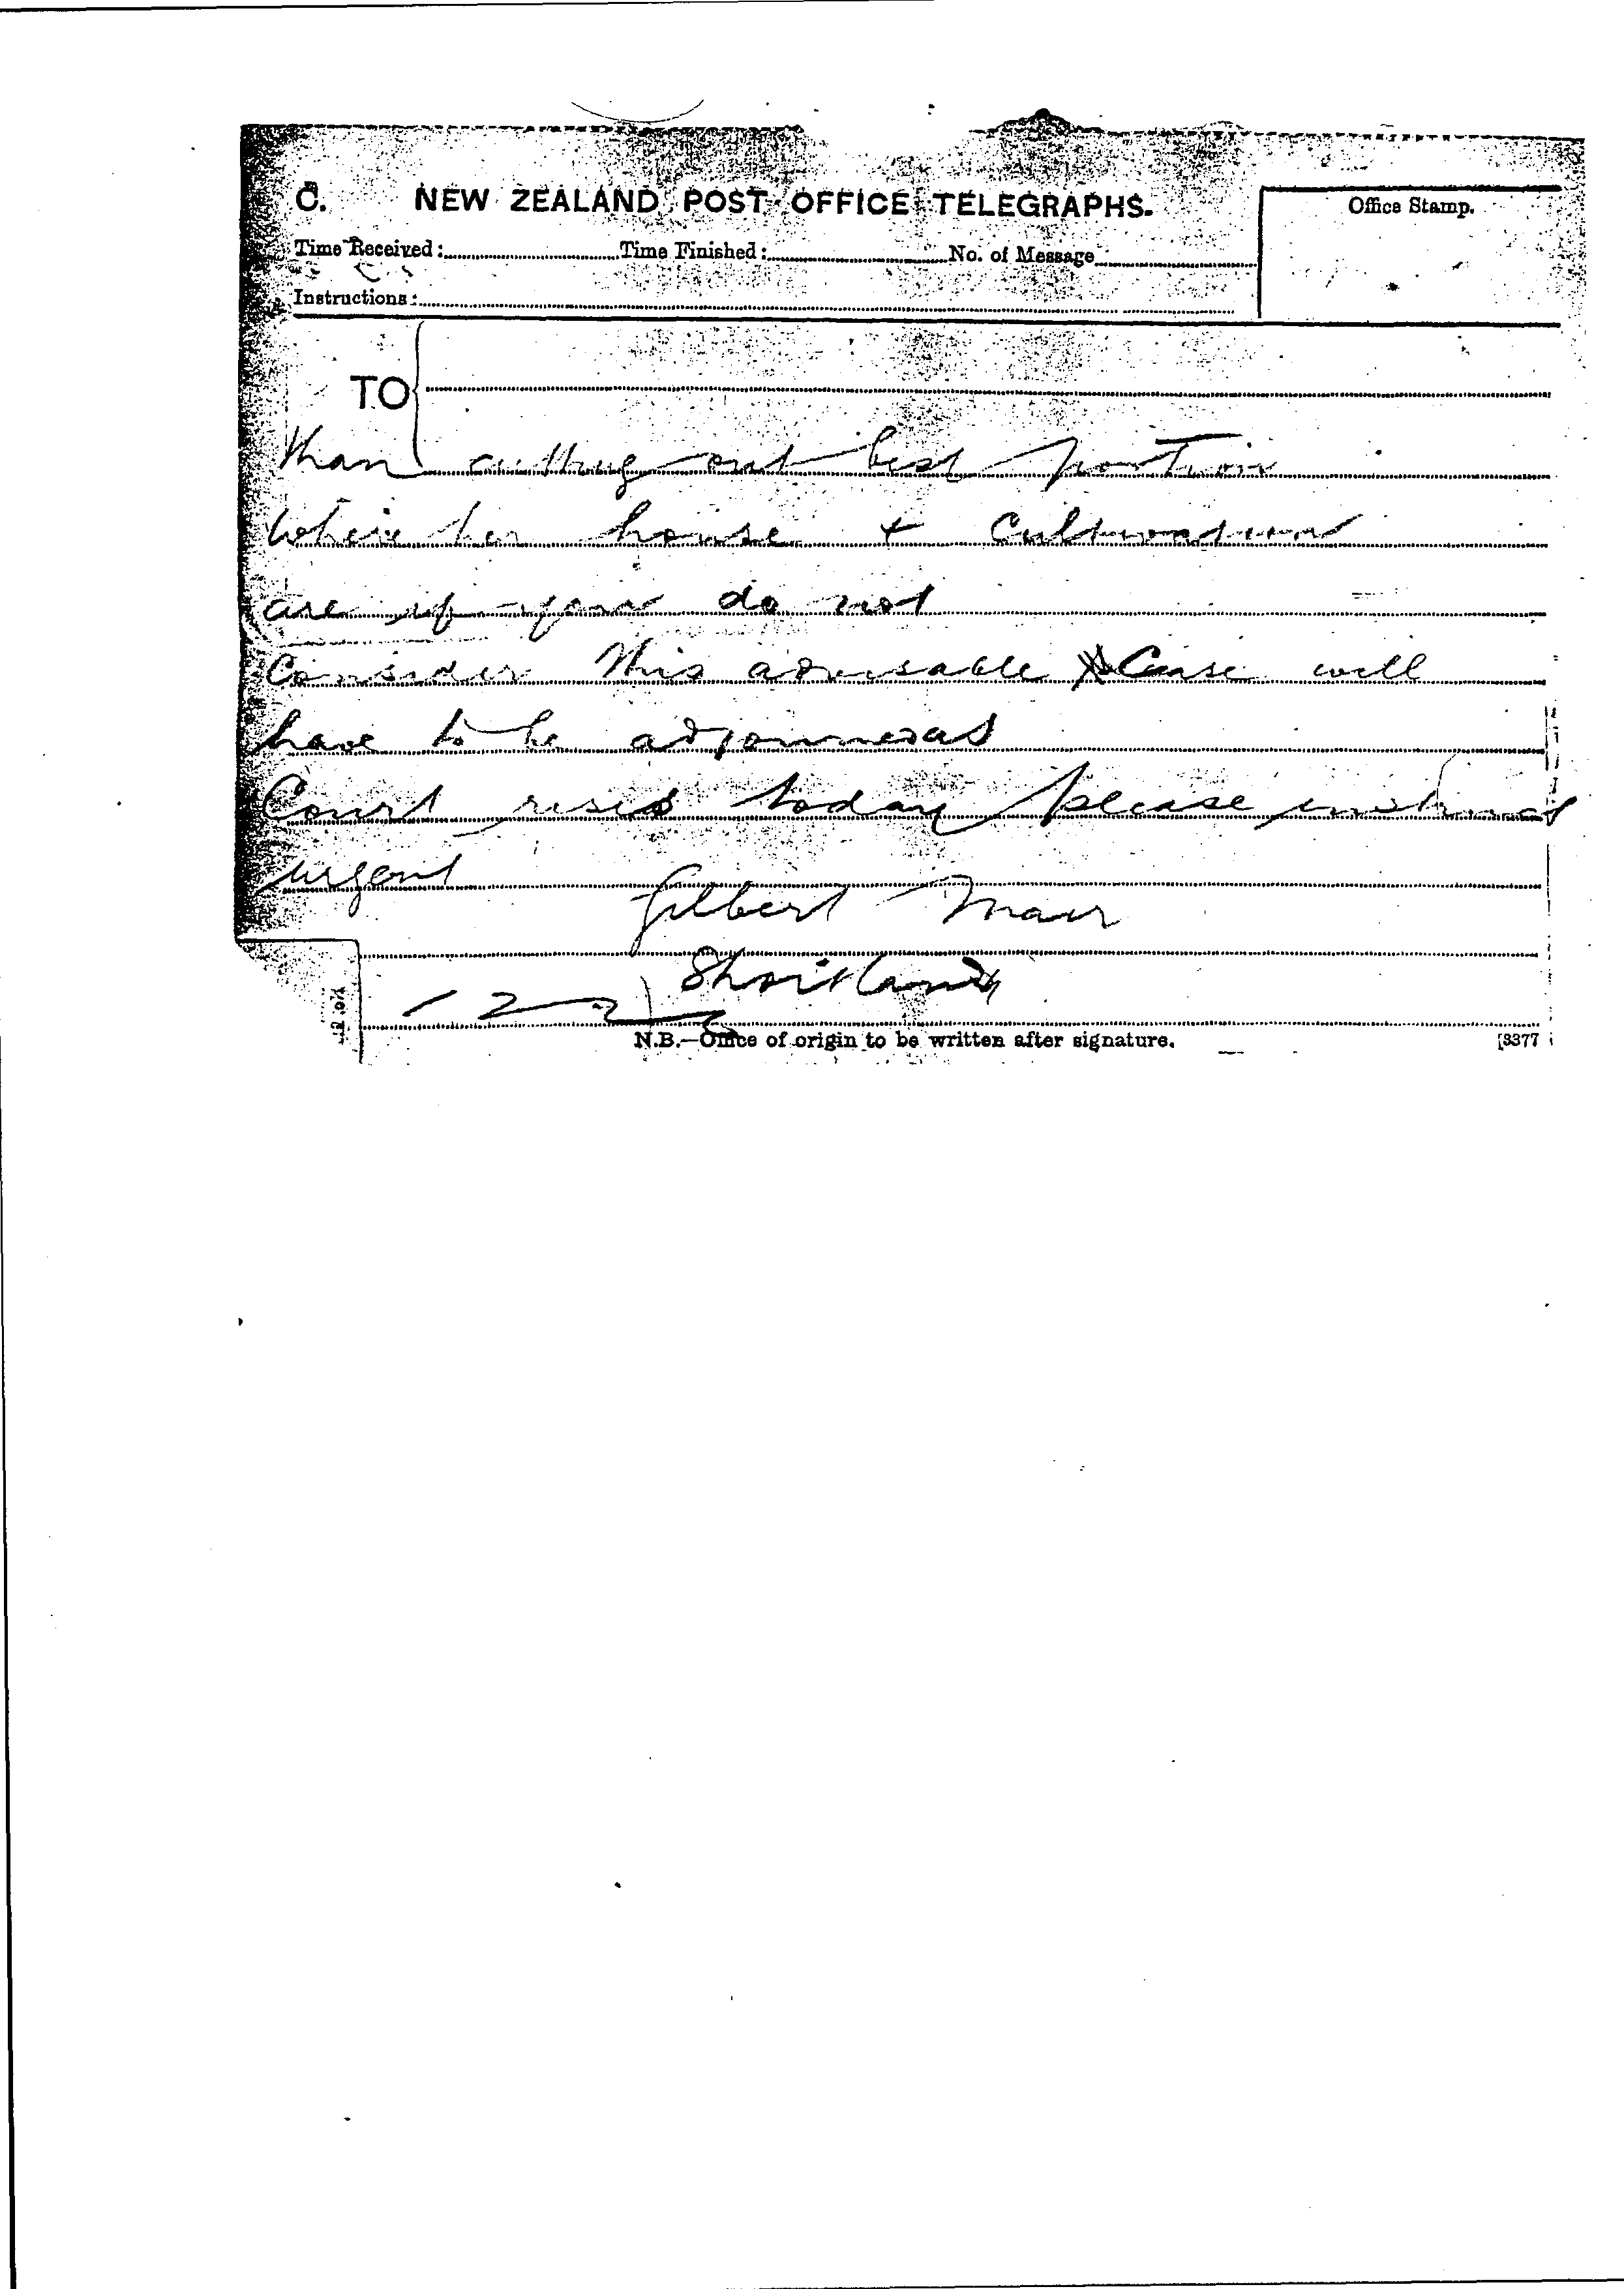 C. NEW ZEALAND POST OFFICE TELEGRAPHS.
Office Stamp.
Time Received: Time Finished: No. of Message
Instructions:
TO
than cutting out best portion
where her house + cultivations
are if you do not
Consider this advisable Case will
have to be adjourned as
Court rises today please instruct
urgent
Gilbert Mair
Shortland
N.B.—Office of origin to be written after signature. [3377